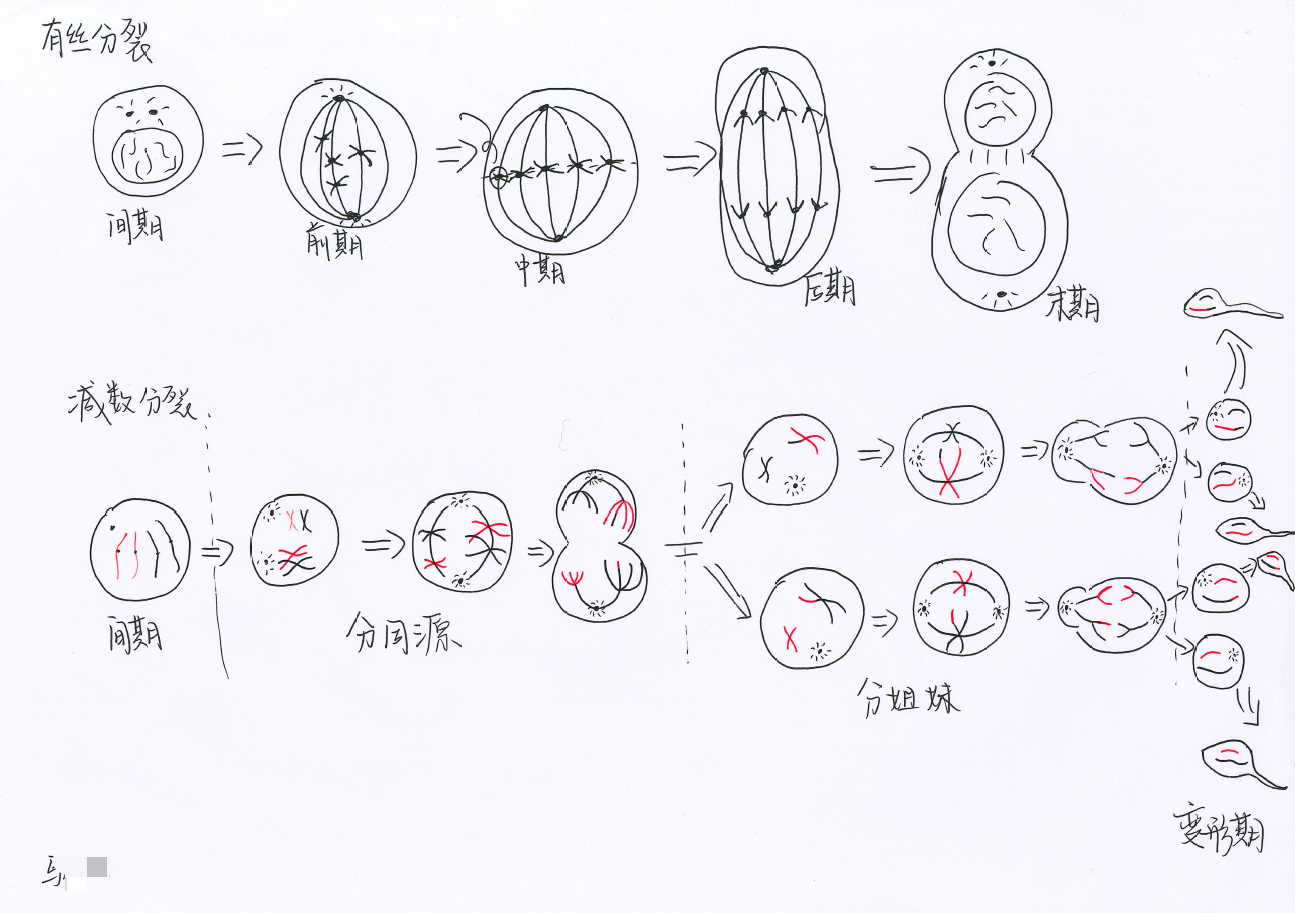 有丝分裂
间期
前期
中期
后期
末期
减数分裂
间期
分同源
分姐妹
变形期